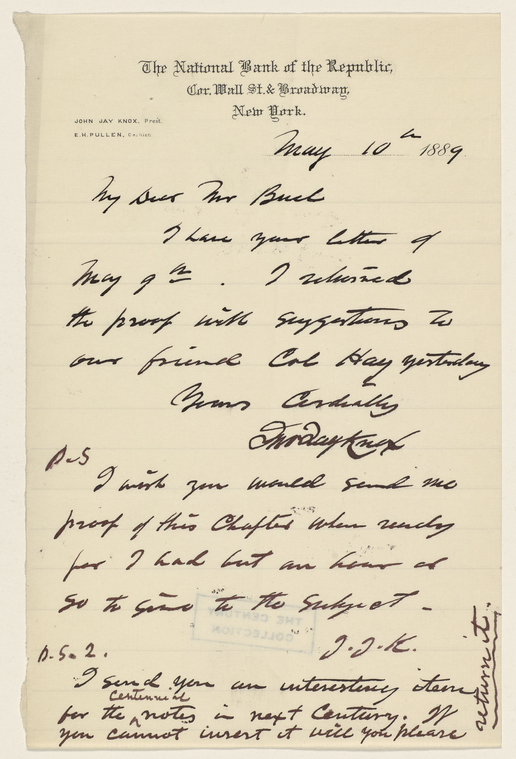 The National Bank of the Republic,
Cor. Wall St. & Broadway,
New York.
JOHN JAY KNOX, Prest.
E.H. PULLEN, Cashier.
May 10th 1889
My Dear Mr Buel
I have your letter of
May 9th. I returned
the proof with suggestions to
our friend Col Hay yesterday
Yours Cordially
Jno Jay Knox
P.S
I wish you would send me
proof of this Chapter when ready
for I had but an hour or
so to give to the subject -
J.J.K.
THE CENTURY
COLLECTION
P.S. 2.
I send you an interesting item
for the Centennial notes in next Century. If
you cannot insert it will you please
return it.